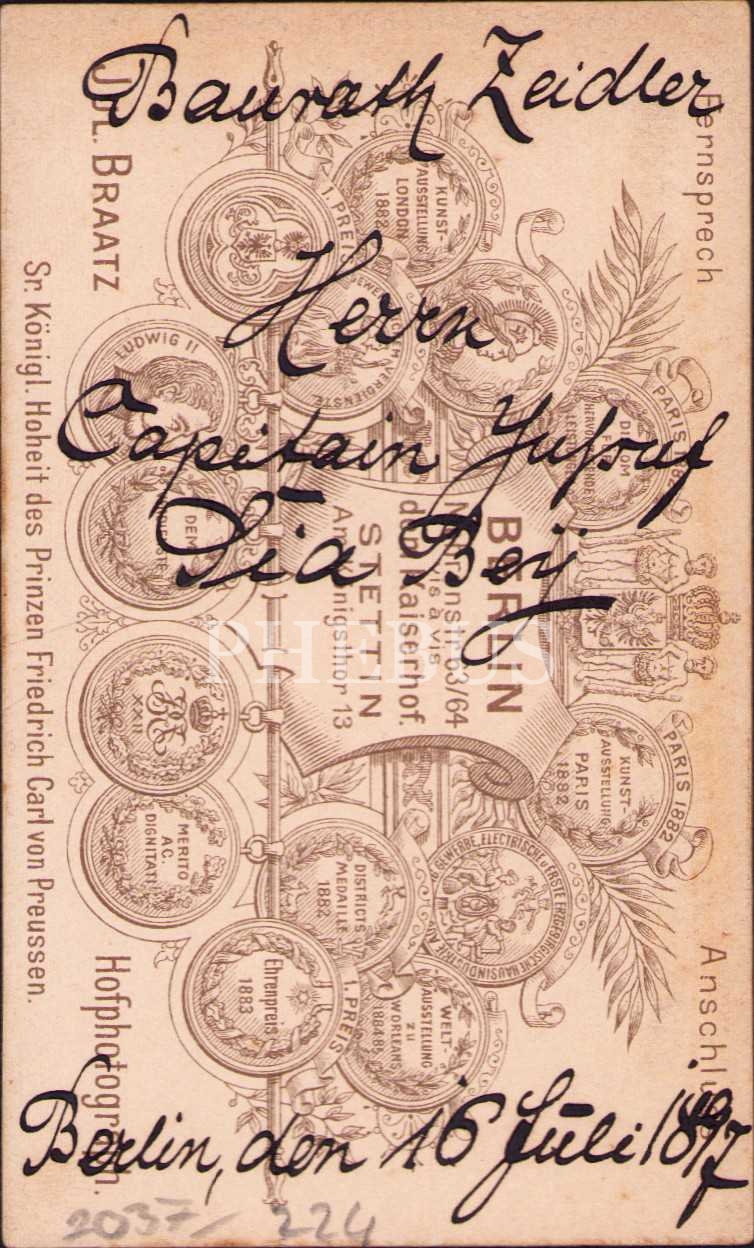 Baurath Zeidler
Herrn
Capitain Jussuf
Dia Beÿ
Berlin, den 16 Juli 1897
2037/ 224
PHEBUS
JUL. BRAATZ
Hofphotograph.
Sr. Königl. Hoheit des Prinzen Friedrich Carl von Preussen.
Fernsprech
Anschluss
BERLIN
63/64
vis à vis
dem Kaiserhof.
STETTIN
Am Königsthor 13
1. PREIS
KUNST-
AUSSTELLUNG
LONDON
1882
VERDIENSTE
LUDWIG II
DEM
PARIS 1882
KUNST-
AUSSTELLUNG
PARIS
1882
PARIS 1882
XXII
MERITO
AC.
DIGNITATI
DISTRICTS
MEDAILLE
1882
GEWERBE, ELECTRISCHE
Ehrenpreis
1883
1. PREIS
WELT-
AUSSTELLUNG
zu
1884-85